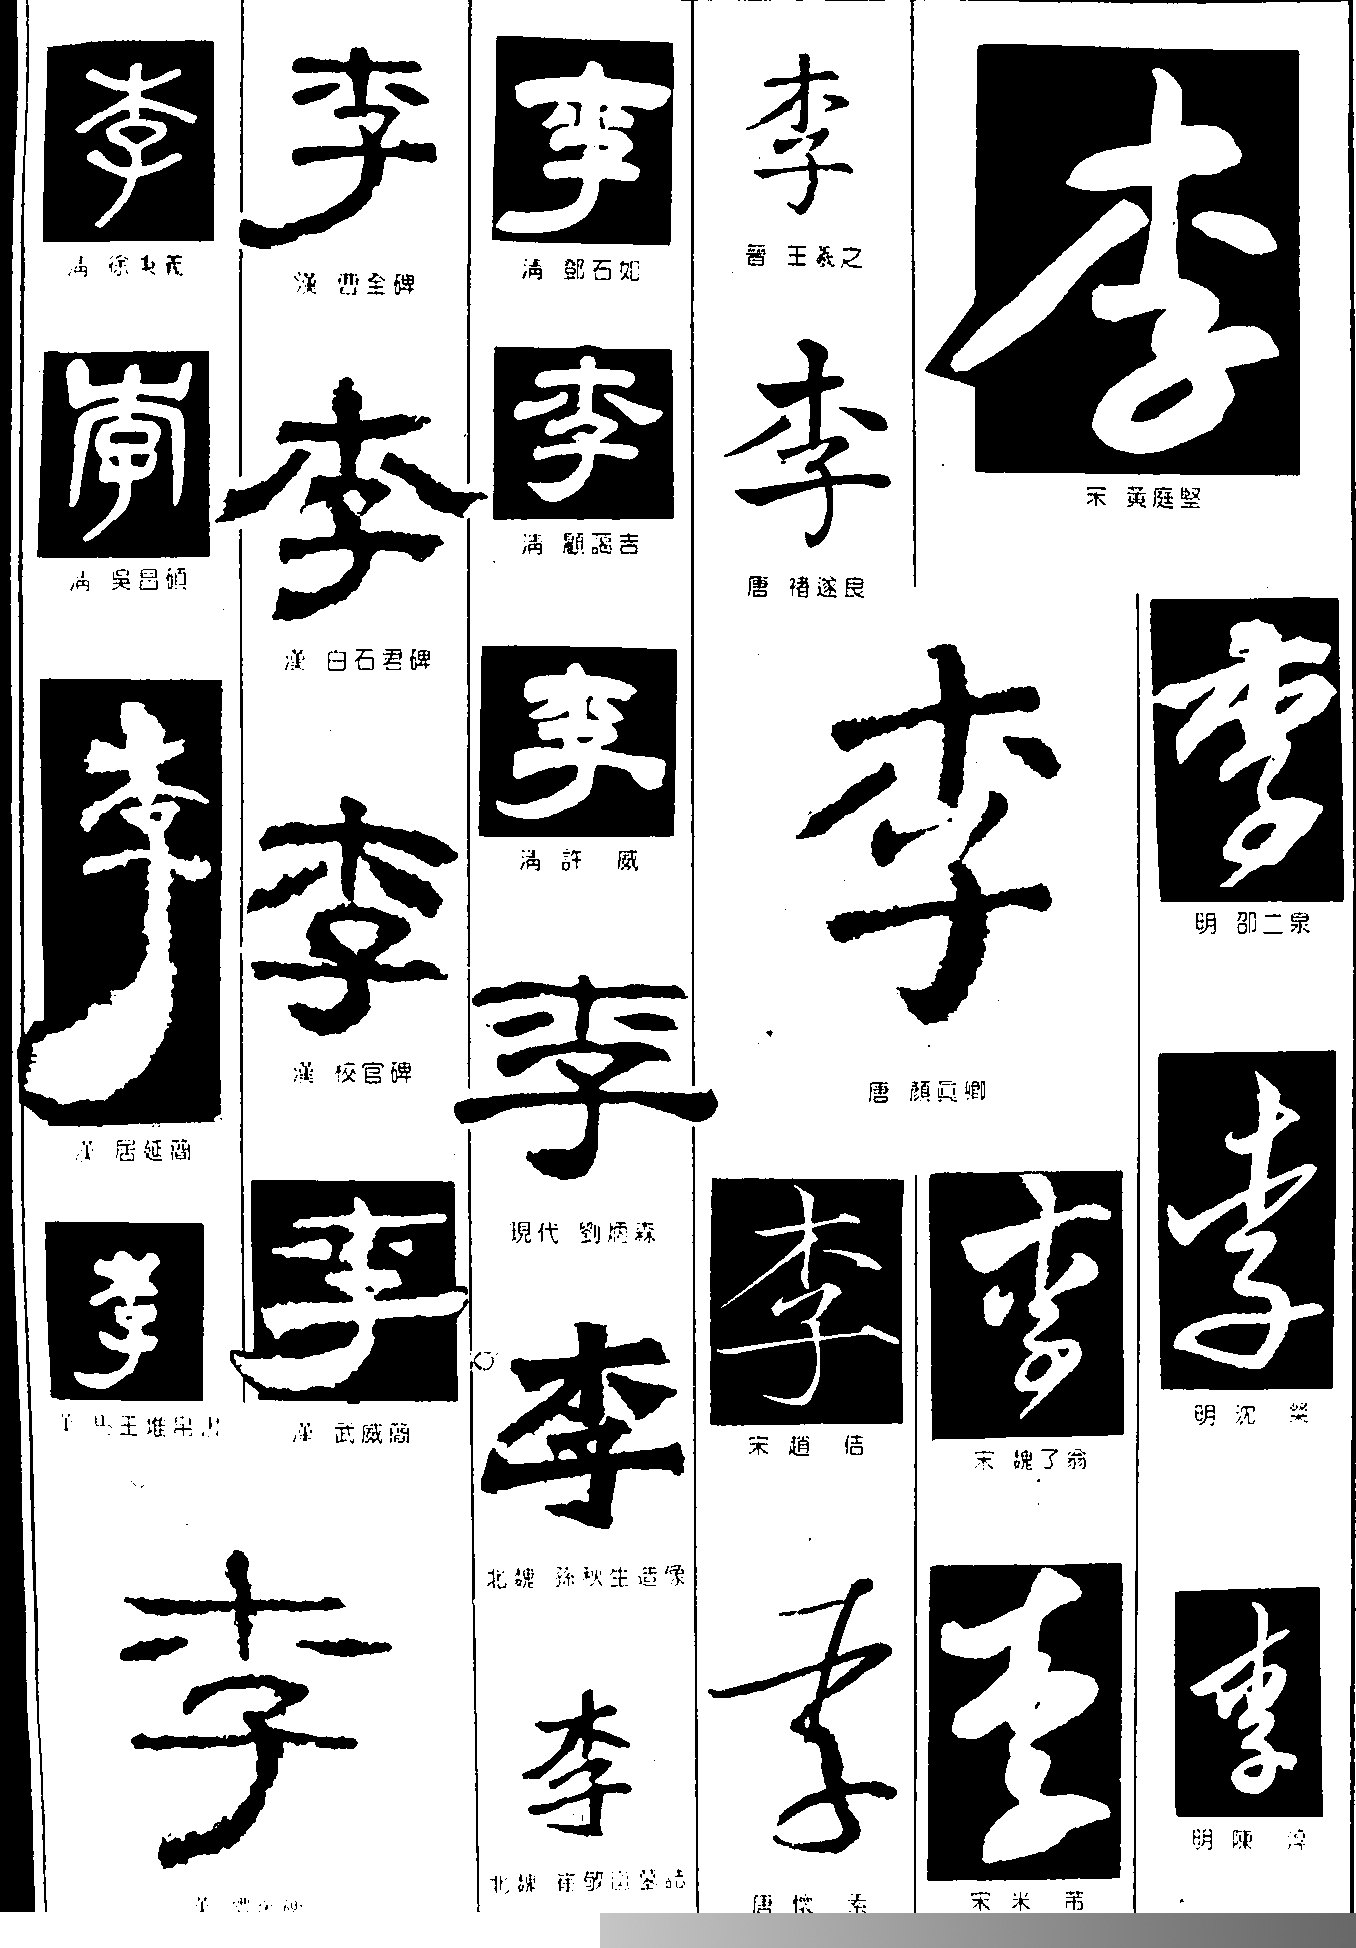 李
清 徐東義
李
清 吳昌碩
李
漢 居延簡
李
漢 馬王堆帛書
李
李
漢 曹全碑
李
漢 白石君碑
李
漢 校官碑
李
漢 武威簡
李
清 鄧石如
李
清 顧藹吉
李
清 許 威
李
現代 劉炳森
李
北魏 孫秋生造像
李
北魏 崔敬邕墓誌
李
晉 王羲之
李
唐 褚遂良
李
唐 顏真卿
李
宋 趙 佶
李
唐 懷 素
李
宋 黃庭堅
李
宋 魏了翁
李
宋 米 芾
李
明 邵二泉
李
明 沈 粲
李
明 陳 淳